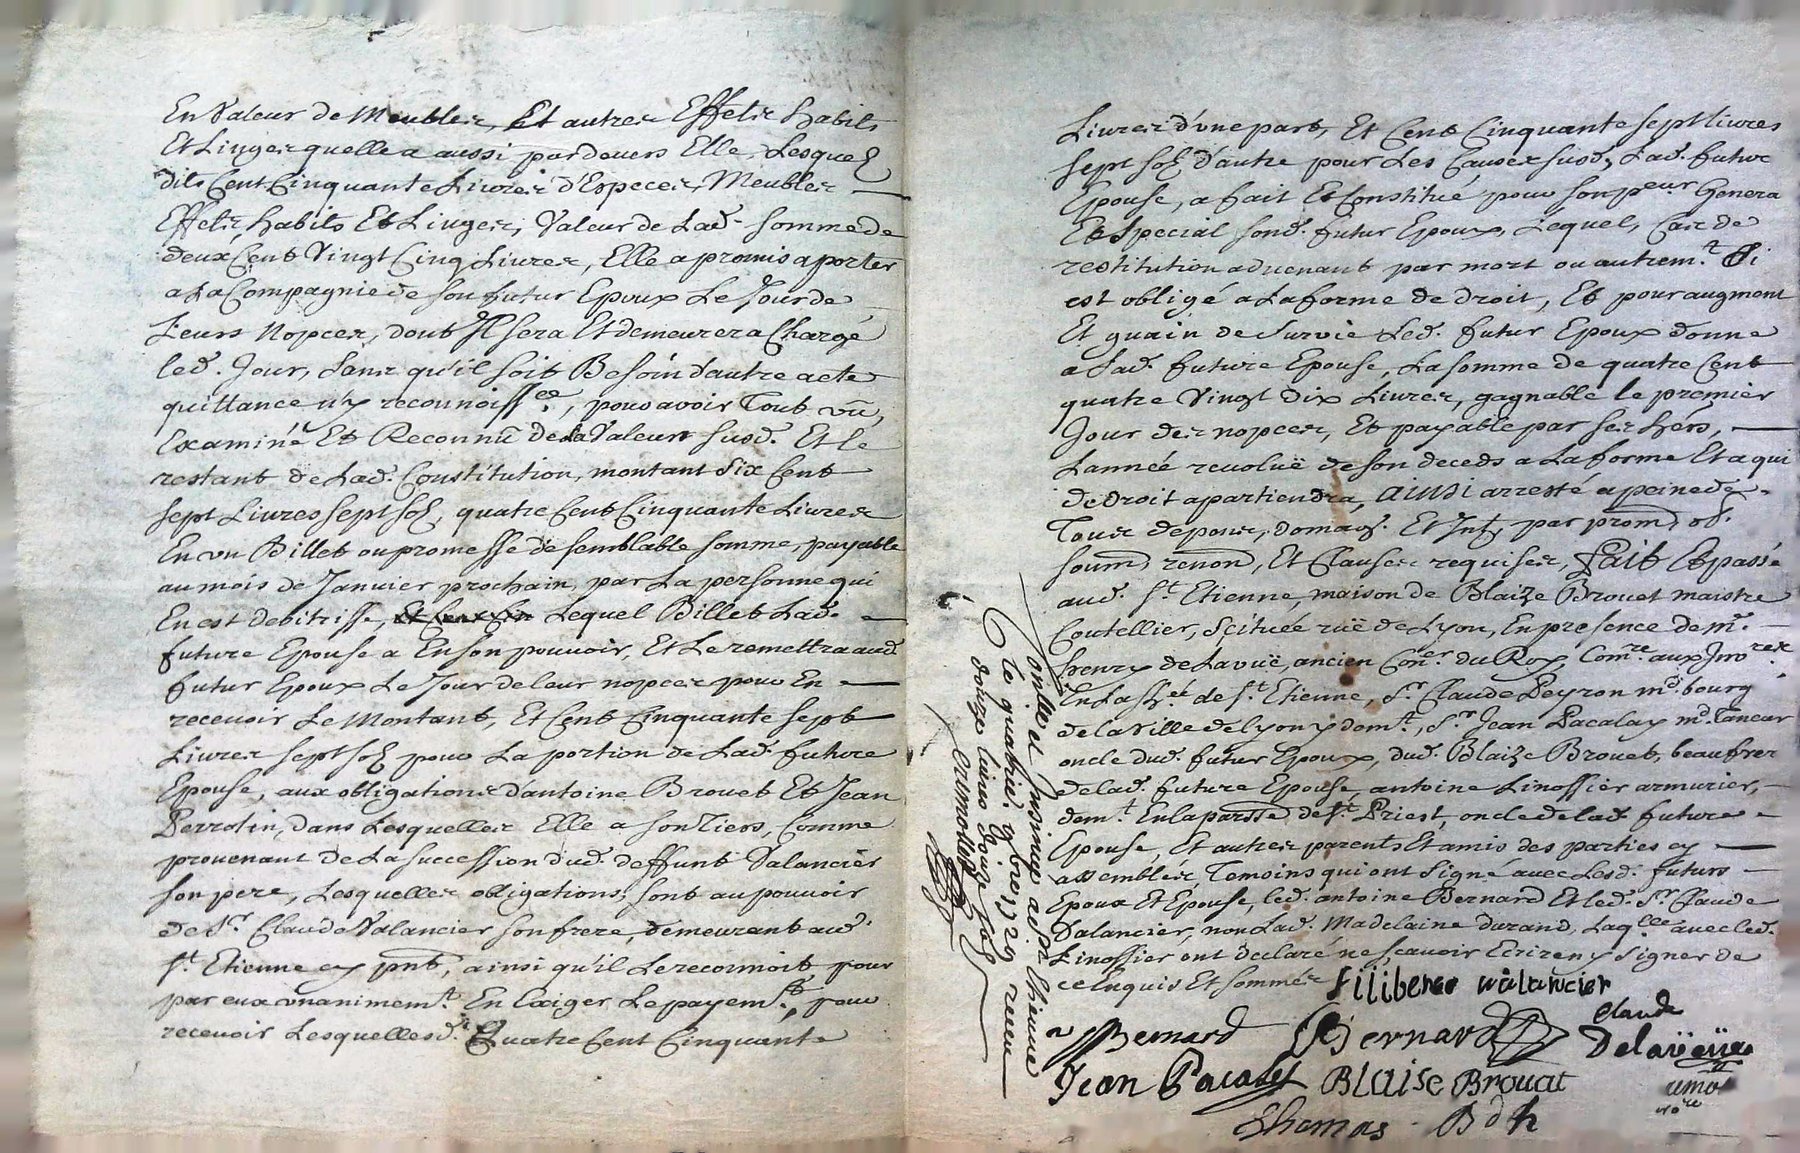 En Valeur de Meubles, Et autres Effets habits
Et Linges quelle a aussi pardevers Elle, Lesquels
dits Cent Cinquante Livres d'Especes, Meubles
Effets, habits Et Linges, Valeur de Lad. somme de
deux Cent Vingt Cinq Livres, Elle a promis aporter
a La Compagnie de son futur Epoux Le Jour de
Leurs Nopces, dont Il sera Et demeurera Chargé
led. Jour, sans qu'il soit Besoin d'autre acte
quittance ny reconnoissce, pour avoir Tout vû,
Examiné Et Reconnû de la Valeur susd. Et le
restant de Lad. Constitution, montant six Cent
sept Livres sept sols, quatre Cent Cinquante Livres
En un Billet ou promesse de semblable somme, payable
au mois de Janvier prochain, par La personne qui
En est debitrisse, Lequel Billet Lad.
future Epouse a En son pouvoir, Et Le remettra aud.
futur Epoux Le Jour de leur nopces pour En
recevoir Le Montant, Et Cent Cinquante sept
Livres sept sols pour La portion de Lad. future
Epouse, aux obligations d'antoine Brouet Et Jean
Perrotin, dans Lesquelles Elle a son Tiers, Comme
provenant de La succession dud. deffunt Valancier
son pere, Lesquelles obligations, sont au pouvoir
de Sr. Claude Valancier son frere, demeurant aud.
St. Etienne cy pnt, ainsi qu'il Le reconnoit pour
par eux unanimemt. En Exiger Le payemt., pour
recevoir Lesquelles d. Quatre Cent Cinquante
Livres d'une part, Et Cent Cinquante sept livres
sept sols d'autre pour Les Causes susd., Lad. future
Epouse, a fait Et Constitué pour son pcur Genera
Et Special sond. futur Epoux, Lequel, Cas de
restitution advenant par mort ou autremt. si
est obligé a La forme de droit, Et pour augment
Et guain de Survie Led. futur Epoux donne
a Lad. future Epouse, La somme de quatre Cent
quatre Vingt Dix Livres, gagnable le premier
Jour des nopces, Et payable par ses hers,
L'année revoluë de son deceds a La forme Et a qui
de droit apartiendra, ainsi arresté a peine de
Tous depens, domag. Et Int. par prom. ob.
soum. renon, Et Clauses requises, Fait Et passé
aud. St. Etienne, maison de Blaize Brouet maistre
Coutellier, scituée ruë de Lyon, En presence de mr.
henry de Lavuë, ancien Coner. du Roy, Comre. aux Invres
En La Snée. de St. Etienne, Sr. Claude Peyron md. bourg
de la Ville de Lyon y demt., Sr. Jean Pacalay md. Taneur
oncle dud. futur Epoux, dud. Blaize Brouet, beaufrer
de lad. future Epouse, antoine Linossier armurier,
demt. En la parsse de St. Priest, oncle de lad. future
Epouse, Et autres parents Et amis des parties cy
assemblés, Temoins qui ont signé avec Lesd. futurs
Epoux Et Epouse, led. antoine Bernard Et led. Sr. Claude
Valancier, non Lad. Madelaine durand, Laqlle avec led.
Linossier ont declaré ne sçavoir Ecrire ny signer de
ce Enquis Et sommés
filiberte walancier
Bernard Bernard Claude
Delavëüe
Jean Pacalet Blaise Brouat
Thomas
Controllé et Insinué a St Etienne
le quatrie. 9bre 1729 receu
douze livres douze sols